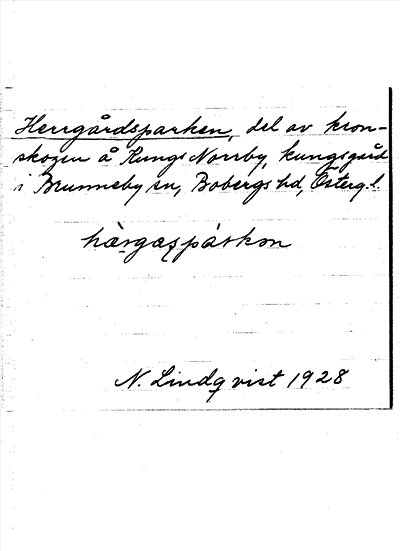 Herrgårdsparken, del av kron-
skogen å Kungs Norrby, kungsgård
i Brunneby sn, Bobergs hd, Österg. l.
hàrgaspárkən
N. Lindqvist 1928